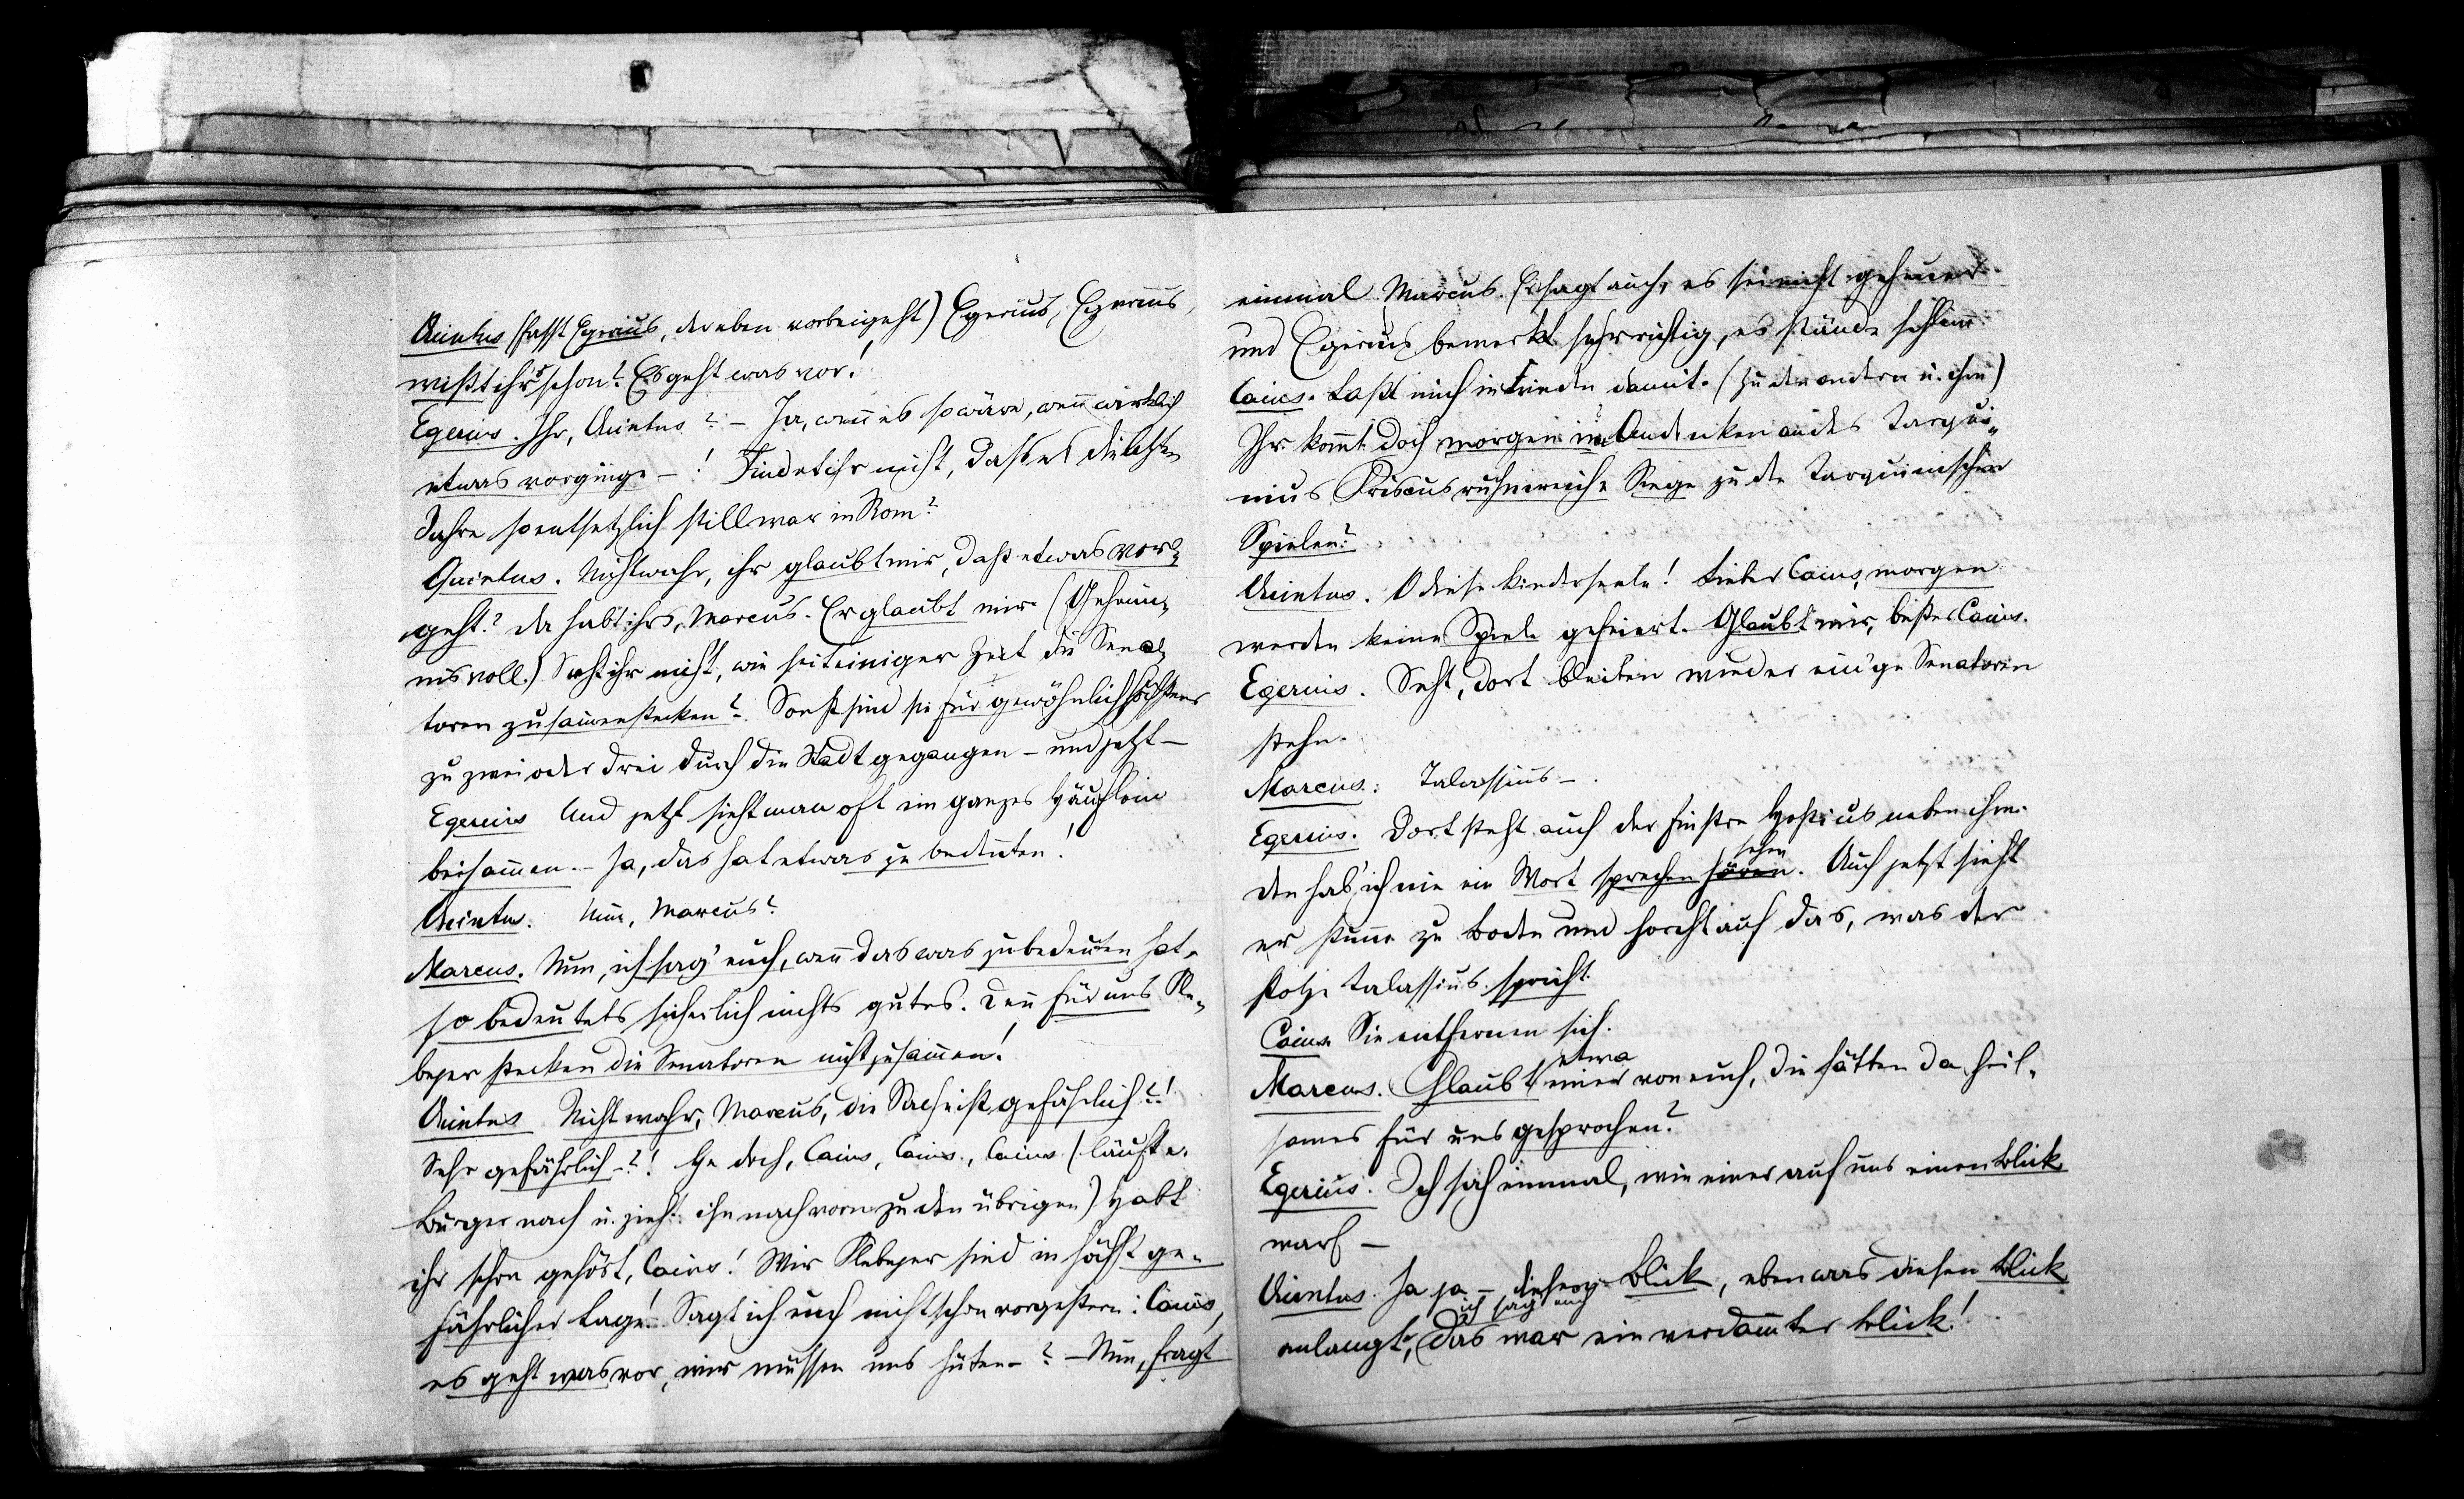 Quintus (fasst Egerius, der eben vorbeigeht) Egerius, Egerius,
wißt ihr's schon? Es geht was vor!
Egerius. Ihr, Quintus? – Ja, wenn es so wäre, wenn wirklich
etwas vorginge –! Findet ihr nicht, daß es die letzten
Jahre so entsetzlich still war in Rom?
Quintus. Nicht wahr, ihr glaubt mir, daß etwas vor-
geht? Da habt ihrs, Marcus. Er glaubt mir. (Geheim-
nisvoll.) Seht ihr nicht, wie seit einiger Zeit die Sena-
toren zusammenstecken? Sonst sind sie für gewöhnlich höchstens
zu zwei oder drei durch die Stadt gegangen – und jetzt –
Egerius Und jetzt sieht man oft ein ganzes Häuflein
beisammen. – Ja, das hat etwas zu bedeuten!
Quintus. Nun, Marcus?
Marcus. Nun, ich sag' euch, wenn das was zu bedeuten hat,
so bedeutets sicherlich nichts gutes. Denn für uns Ple-
bejer stecken die Senatoren nicht zusammen!
Quintus Nicht wahr, Marcus, die Sache ist gefährlich?!
Sehr gefährlich –?! He doch, Caius, Caius, Caius (läuft e.
Bürger nach u. zieht ihn nach vorn zu den übrigen) Habt
ihr schon gehört, Caius! Wir Plebejer sind in höchst ge-
fährlicher Lage! Sagt ich euch nicht schon vorgestern: Caius,
es geht was vor, wir müssen uns hüten –? – Nun, fragt
einmal Marcus. Er sagt auch, es sei nicht geheuer
und Egerius bemerkt sehr richtig, es stände schlimm.
Caius. Laßt mich in Frieden damit. (Zu den andern u. ihm)
Ihr kommt doch morgen im Andenken an des Tarqui-
nius Priscus ruhmreiche Siege zu den Tarquinischen
Spielen?
Quintus. O diese Kinderseele! Lieber Caius, morgen
werden keine Spiele gefeiert. Glaubt mir, bester Caius.
Egerius. Seht, dort bleiben wieder ein'ge Senatoren
stehn.
Marcus: Talassius –.
Egerius. Dort steht auch der finstre Hostius neben ihm.
sehen
Den hab' ich nie ein Wort sprechen hören. Auch jetzt sieht
er stumm zu Boden und horcht auf das, was der
stolze Talassius spricht.
Caius Sie entfernen sich.
etwa
Marcus. Glaubt einer von euch, die hätten da heil-
sames für uns gesprochen?
Egerius. Ich sah einmal, wie einer auf uns einen Blick
warf –
Quintus. Ja ja – dieser Blick, eben was diesen Blick
ich sag euch
anlangt, das war ein verdammter Blick!